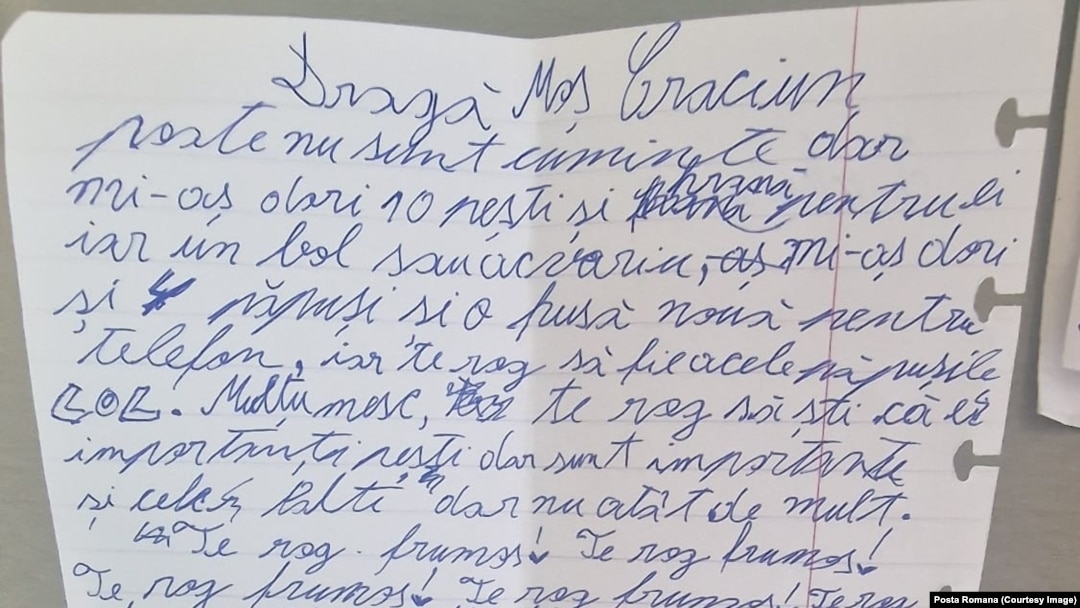 Dragă Moș Craciun
poate nu sunt cuminte dar
mi-aș dori 10 pești și hrană pentru ei
iar un bol sau acvariu, mi-aș dori
și 4 păpuși si o husă nouă pentru
telefon, iar te rog să fie acele păpușile
LOL. Multumesc, te rog să ști că
importanți pești dar sunt importante
și cele lalte dar nu atât de mult.
Te rog frumos! Te rog frumos!
Te rog frumos! Te rog frumos! Te rog
Posta Romana (Courtesy Image)